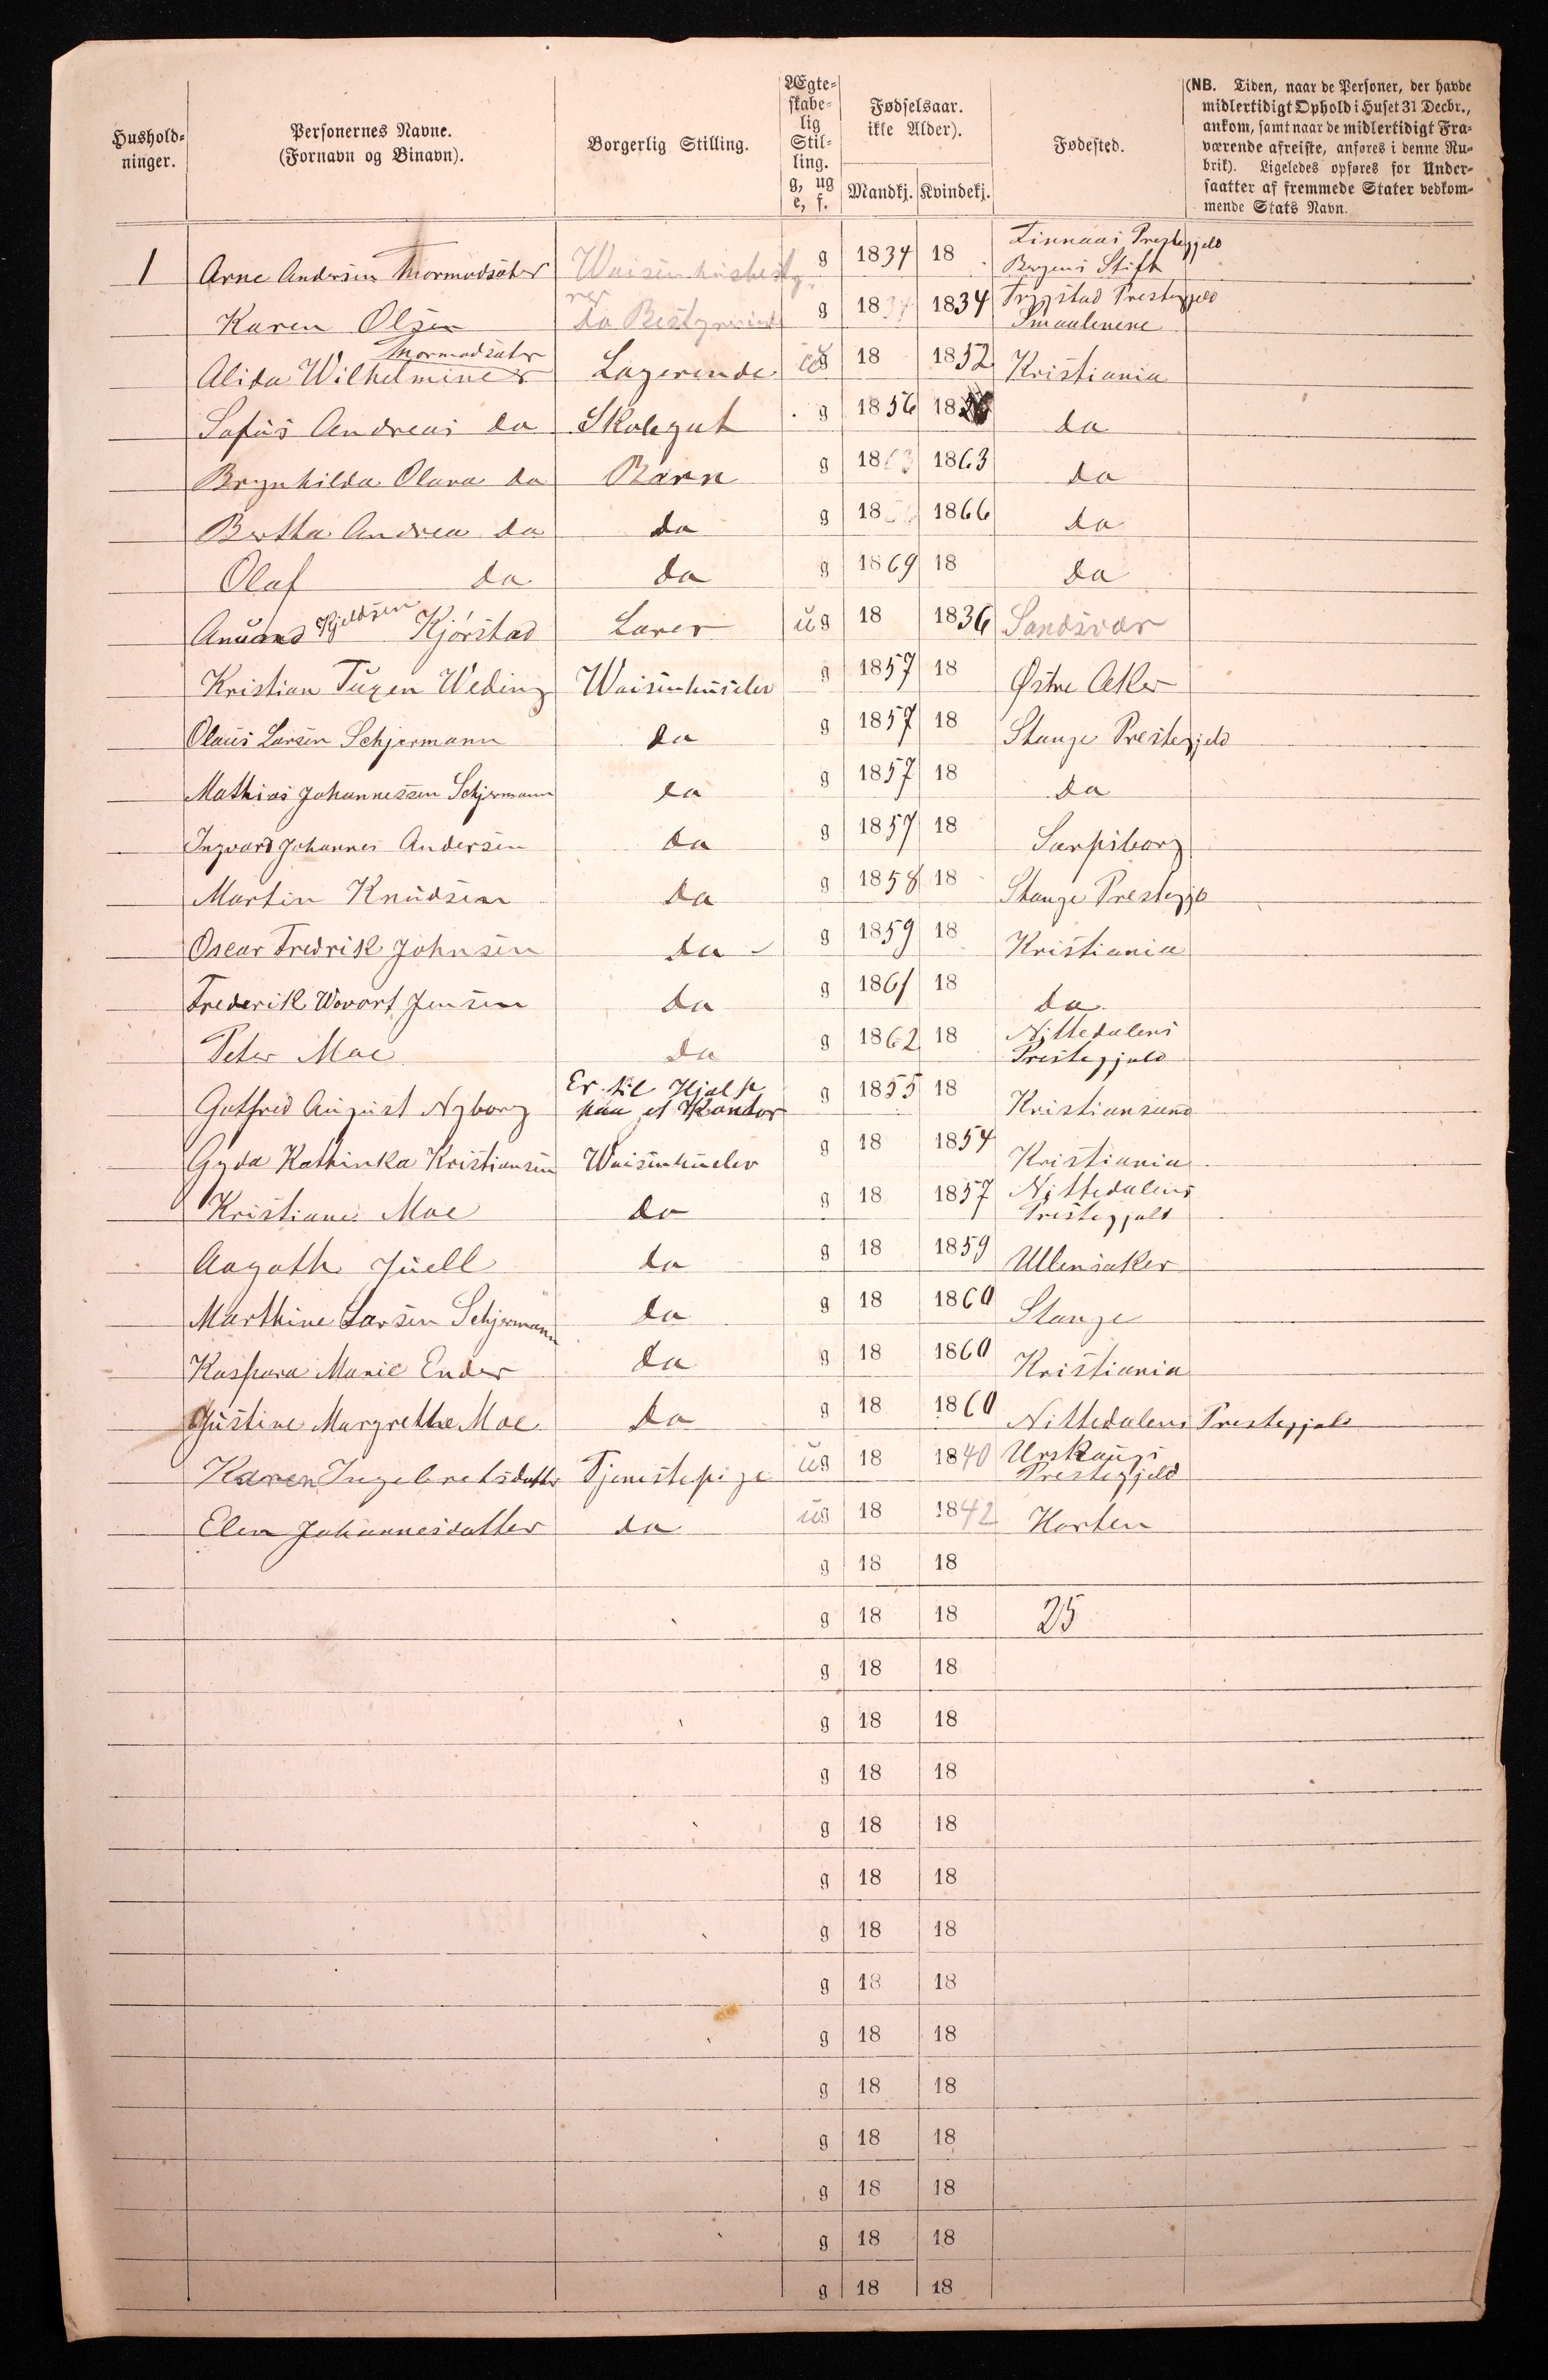 Hushold-
ninger.
Personernes Navne.
(Fornavn og Binavn).
Borgerlig Stilling.
Ægte-
skabe-
lig
Stil-
ling.
g, ug
e, f.
Fødselsaar.
ikke Alder).
Mandkj. Kvindekj.
Fødested.
(NB. Tiden, naar de Personer, der havde
midlertidigt Ophold i Huset 31 Decbr.,
ankom, samt naar de midlertidigt Fra-
værende afreiste, anføres i denne Ru-
brik). Ligeledes opføres for Under-
saatter af fremmede Stater vedkom-
mende Stats Navn.
1 Arne Andersen Thormodsæter Waisenhusbesty- g 1834 18 Finnaas Prestegjeld Bergens Stift
Karen Olsen rer do Bestyrerinde g 18 1834 Trygstad Prestegjeld Smaalenene
Alida Wilhelmine Thormodsæter Lagerende ug 18 1852 Kristiania
Sofus Andreas do Skolegut g 1856 18 do
Brynhilda Olava do Barn g 1863 1863 do
Bertha Andrea do do g 18 1866 do
Olaf do do g 1869 18 do
Anund Kjeldsen Kjørstad Lærer ug 18 1836 Sandsvær
Kristian Tuxen Weding Waisenhuselev g 1857 18 Østre Aker
Olaus Larsen Schjermann do g 1857 18 Stange Prestegjeld
Mathias Johannessen Schjermann do g 1857 18 do
Ingvard Johannes Andersen do g 1857 18 Sarpsborg
Martin Knudsen do g 1858 18 Stange Prestegj
Oscar Fredrik Johnsen do g 1859 18 Kristiania
Frederik Wovort Jensen do g 1861 18 do
Peter Moe do g 1862 18 Nittedalens Prestegjeld
Gotfred August Nyborg Er til Hjælp paa et Kontor g 1855 18 Kristiansand
Gyda Kathinka Kristiansen Waisenhuselev g 18 1854 Kristiania
Kristiane Moe do g 18 1857 Nittedalens Prestegjeld
Aagoth Juell do g 18 1859 Ullensaker
Marthine Larsen Schjermann do g 18 1860 Stange
Kaspara Marie Ender do g 18 1860 Kristiania
Justine Margrethe Moe do g 18 1860 Nittedalens Prestegjeld
Karen Ingebretsdatter Tjenestepige ug 18 1840 Urskougs Prestegjeld
Elen Johannesdatter do ug 18 1842 Horten
g 18 18
g 18 18 25
g 18 18
g 18 18
g 18 18
g 18 18
g 18 18
g 18 18
g 18 18
g 18 18
g 18 18
g 18 18
g 18 18
g 18 18
g 18 18